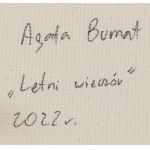 Agata Burnat
„Letni wieczór"
2022 r.